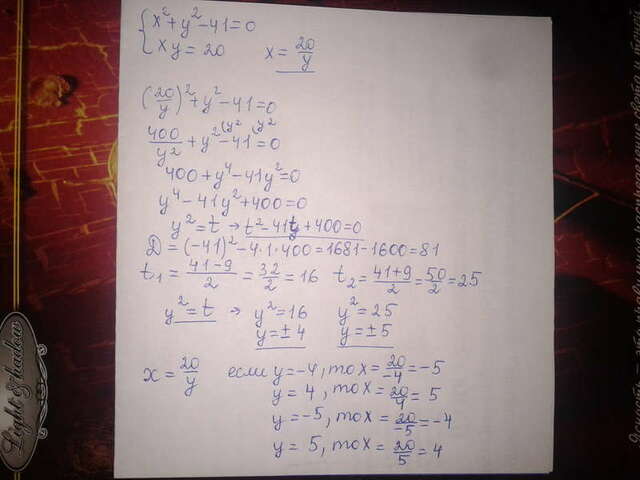 {x²+y²-41=0
xy=20 x=20/y
(20/y)²+y²-41=0
400/y²+y²(y²-41(y²=0
400+y⁴-41y²=0
y⁴-41y²+400=0
y²=t → t²-41t+400=0
D=(-41)²-4·1·400=1681-1600=81
t₁=(41-9)/2=32/2=16 t₂=(41+9)/2=50/2=25
y²=t → y²=16 y²=25
y=±4 y=±5
x=20/y если y=-4, то x=20/-4=-5
y=4, то x=20/4=5
y=-5, то x=20/-5=-4
y=5, то x=20/5=4
Light & shadow